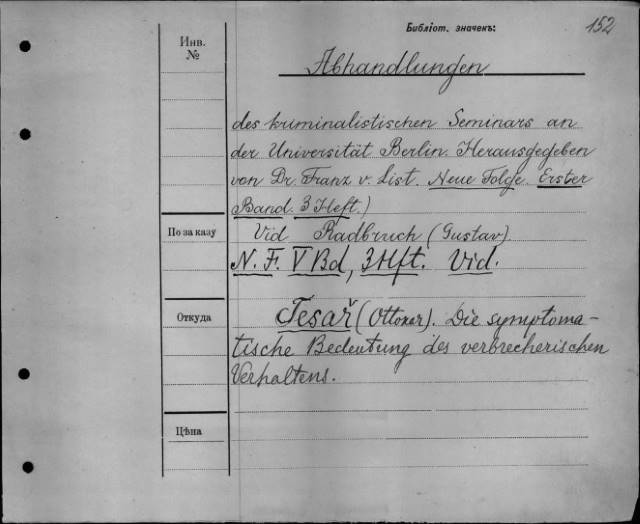 Библіот. значекъ:
152
Инв.
№
Abhandlungen
des kriminalistischen Seminars an
der Universität Berlin. Herausgegeben
von Dr. Franz v. List. Neue Folge. Erster
Band. 3 Heft.)
По заказу
Vid Radbruch (Gustav).
N. F. V Bd, 3 Hft. Vid.
Откуда
Tesař (Ottokar). Die symptoma-
tische Bedeutung des verbrecherischen
Verhaltens.
Цѣна